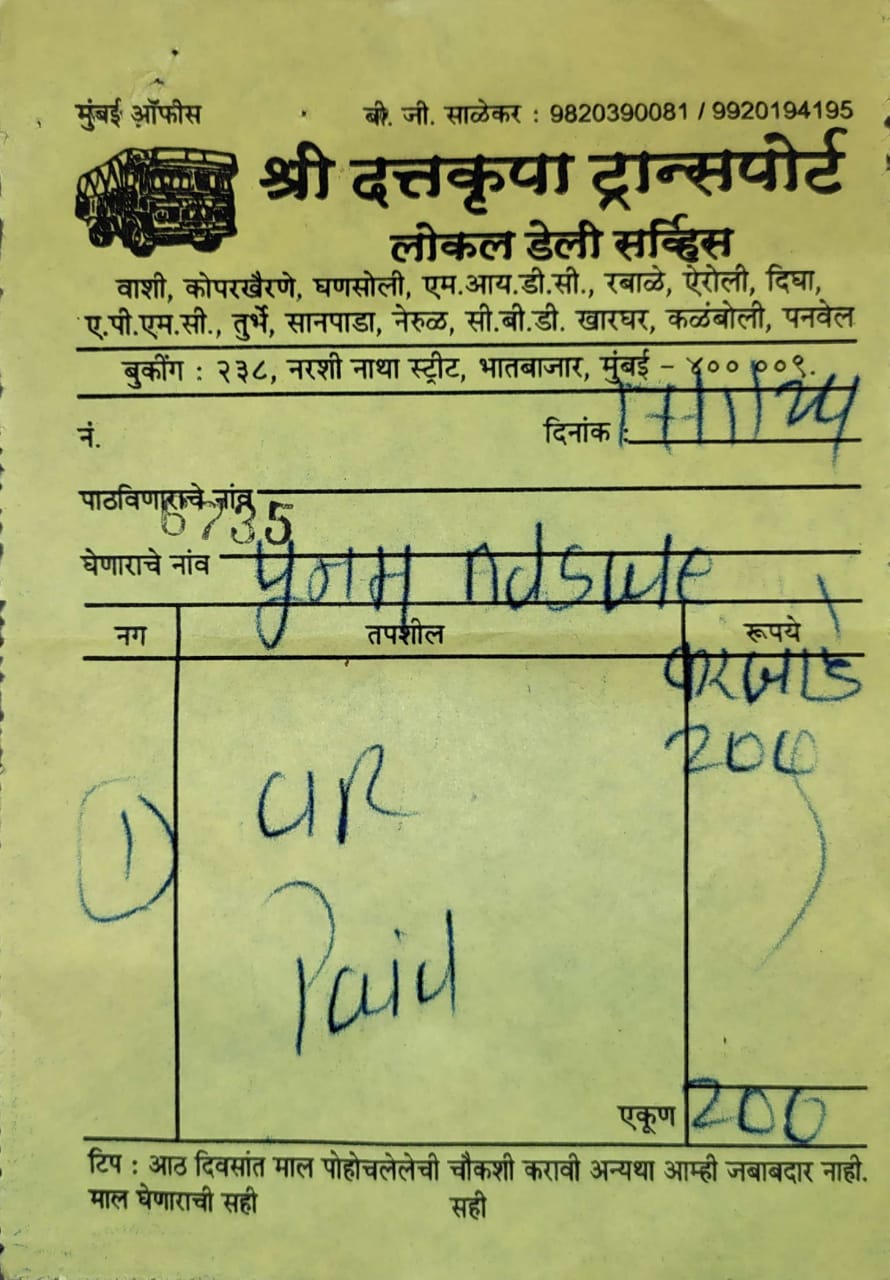 मुंबई ऑफीस बी. जी. साळेकर : 9820390081 / 9920194195
श्री दत्तकृपा ट्रान्सपोर्ट
लोकल डेली सर्व्हिस
वाशी, कोपरखैरणे, घणसोली, एम.आय.डी.सी., रबाळे, ऐरोली, दिघा,
ए.पी.एम.सी., तुर्भे, सानपाडा, नेरुळ, सी.बी.डी. खारघर, कळंबोली, पनवेल
बुकींग : २३८, नरशी नाथा स्ट्रीट, भातबाजार, मुंबई - ४०० ००९.
नं. दिनांक :
पाठविणाराचे नांव
6735
घेणाराचे नांव पुनम
नग तपशील रूपये
200
1
Paid
एकूण 200
टिप : आठ दिवसांत माल पोहोचलेलेची चौकशी करावी अन्यथा आम्ही जबाबदार नाही.
माल घेणाराची सही सही